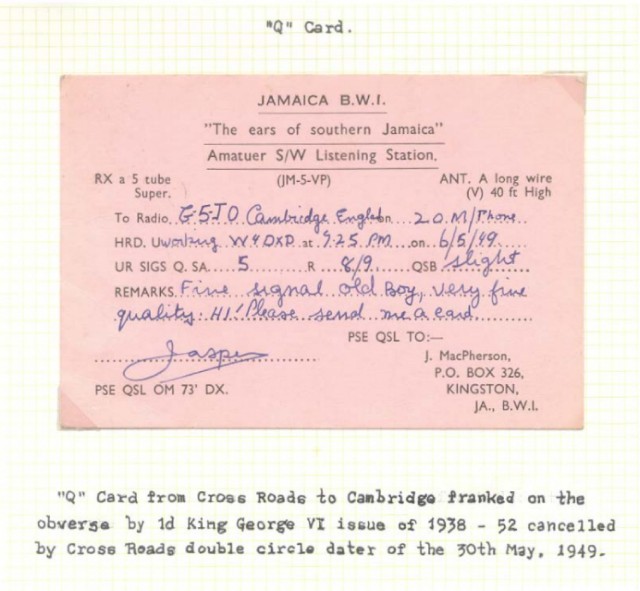 "Q" Card.
JAMAICA B.W.I.
"The ears of southern Jamaica"
Amatuer S/W Listening Station.
RX a 5 tube (JM-5-VP) ANT. A long wire
Super. (V) 40 ft High
To Radio. G5JO Cambridge Engl on 20M/Phone
HRD. U working W4DXD at 9.25 PM on 6/5/49
UR SIGS Q. SA. 5 R 8/9 QSB slight
REMARKS Fine signal old Boy, very fine
quality. HI! Please send me a card.
PSE QSL TO:—
Jasper J. MacPherson,
P.O. BOX 326,
PSE QSL OM 73' DX. KINGSTON,
JA., B.W.I.
"Q" Card from Cross Roads to Cambridge franked on the
obverse by 1d King George VI issue of 1938 - 52 cancelled
by Cross Roads double circle dater of the 30th May, 1949.